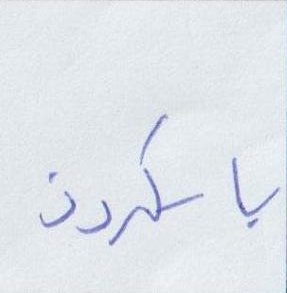 باسکردن